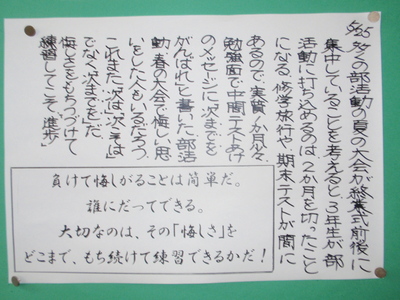 5/25 多くの部活動の夏の大会が終業式前後に
集中していることを考えると、3年生が部
活動に打ち込めるのは2か月を切ったこと
になる。修学旅行や期末テストが間に
あるので、実質1か月少々
勉強面で中間テストあけ
のメッセージに「次までを
がんばれ」と書いた。部活
動、春の大会で悔しい思
いをした人もいるだろう。
これまた「次は」「次こそは」
でなく「次までを」だ。
悔しさをもちつづけて
練習してこそ、進歩。
負けて悔しがることは簡単だ。
誰にだってできる。
大切なのは、その「悔しさ」を
どこまで、もち続けて練習できるかだ!